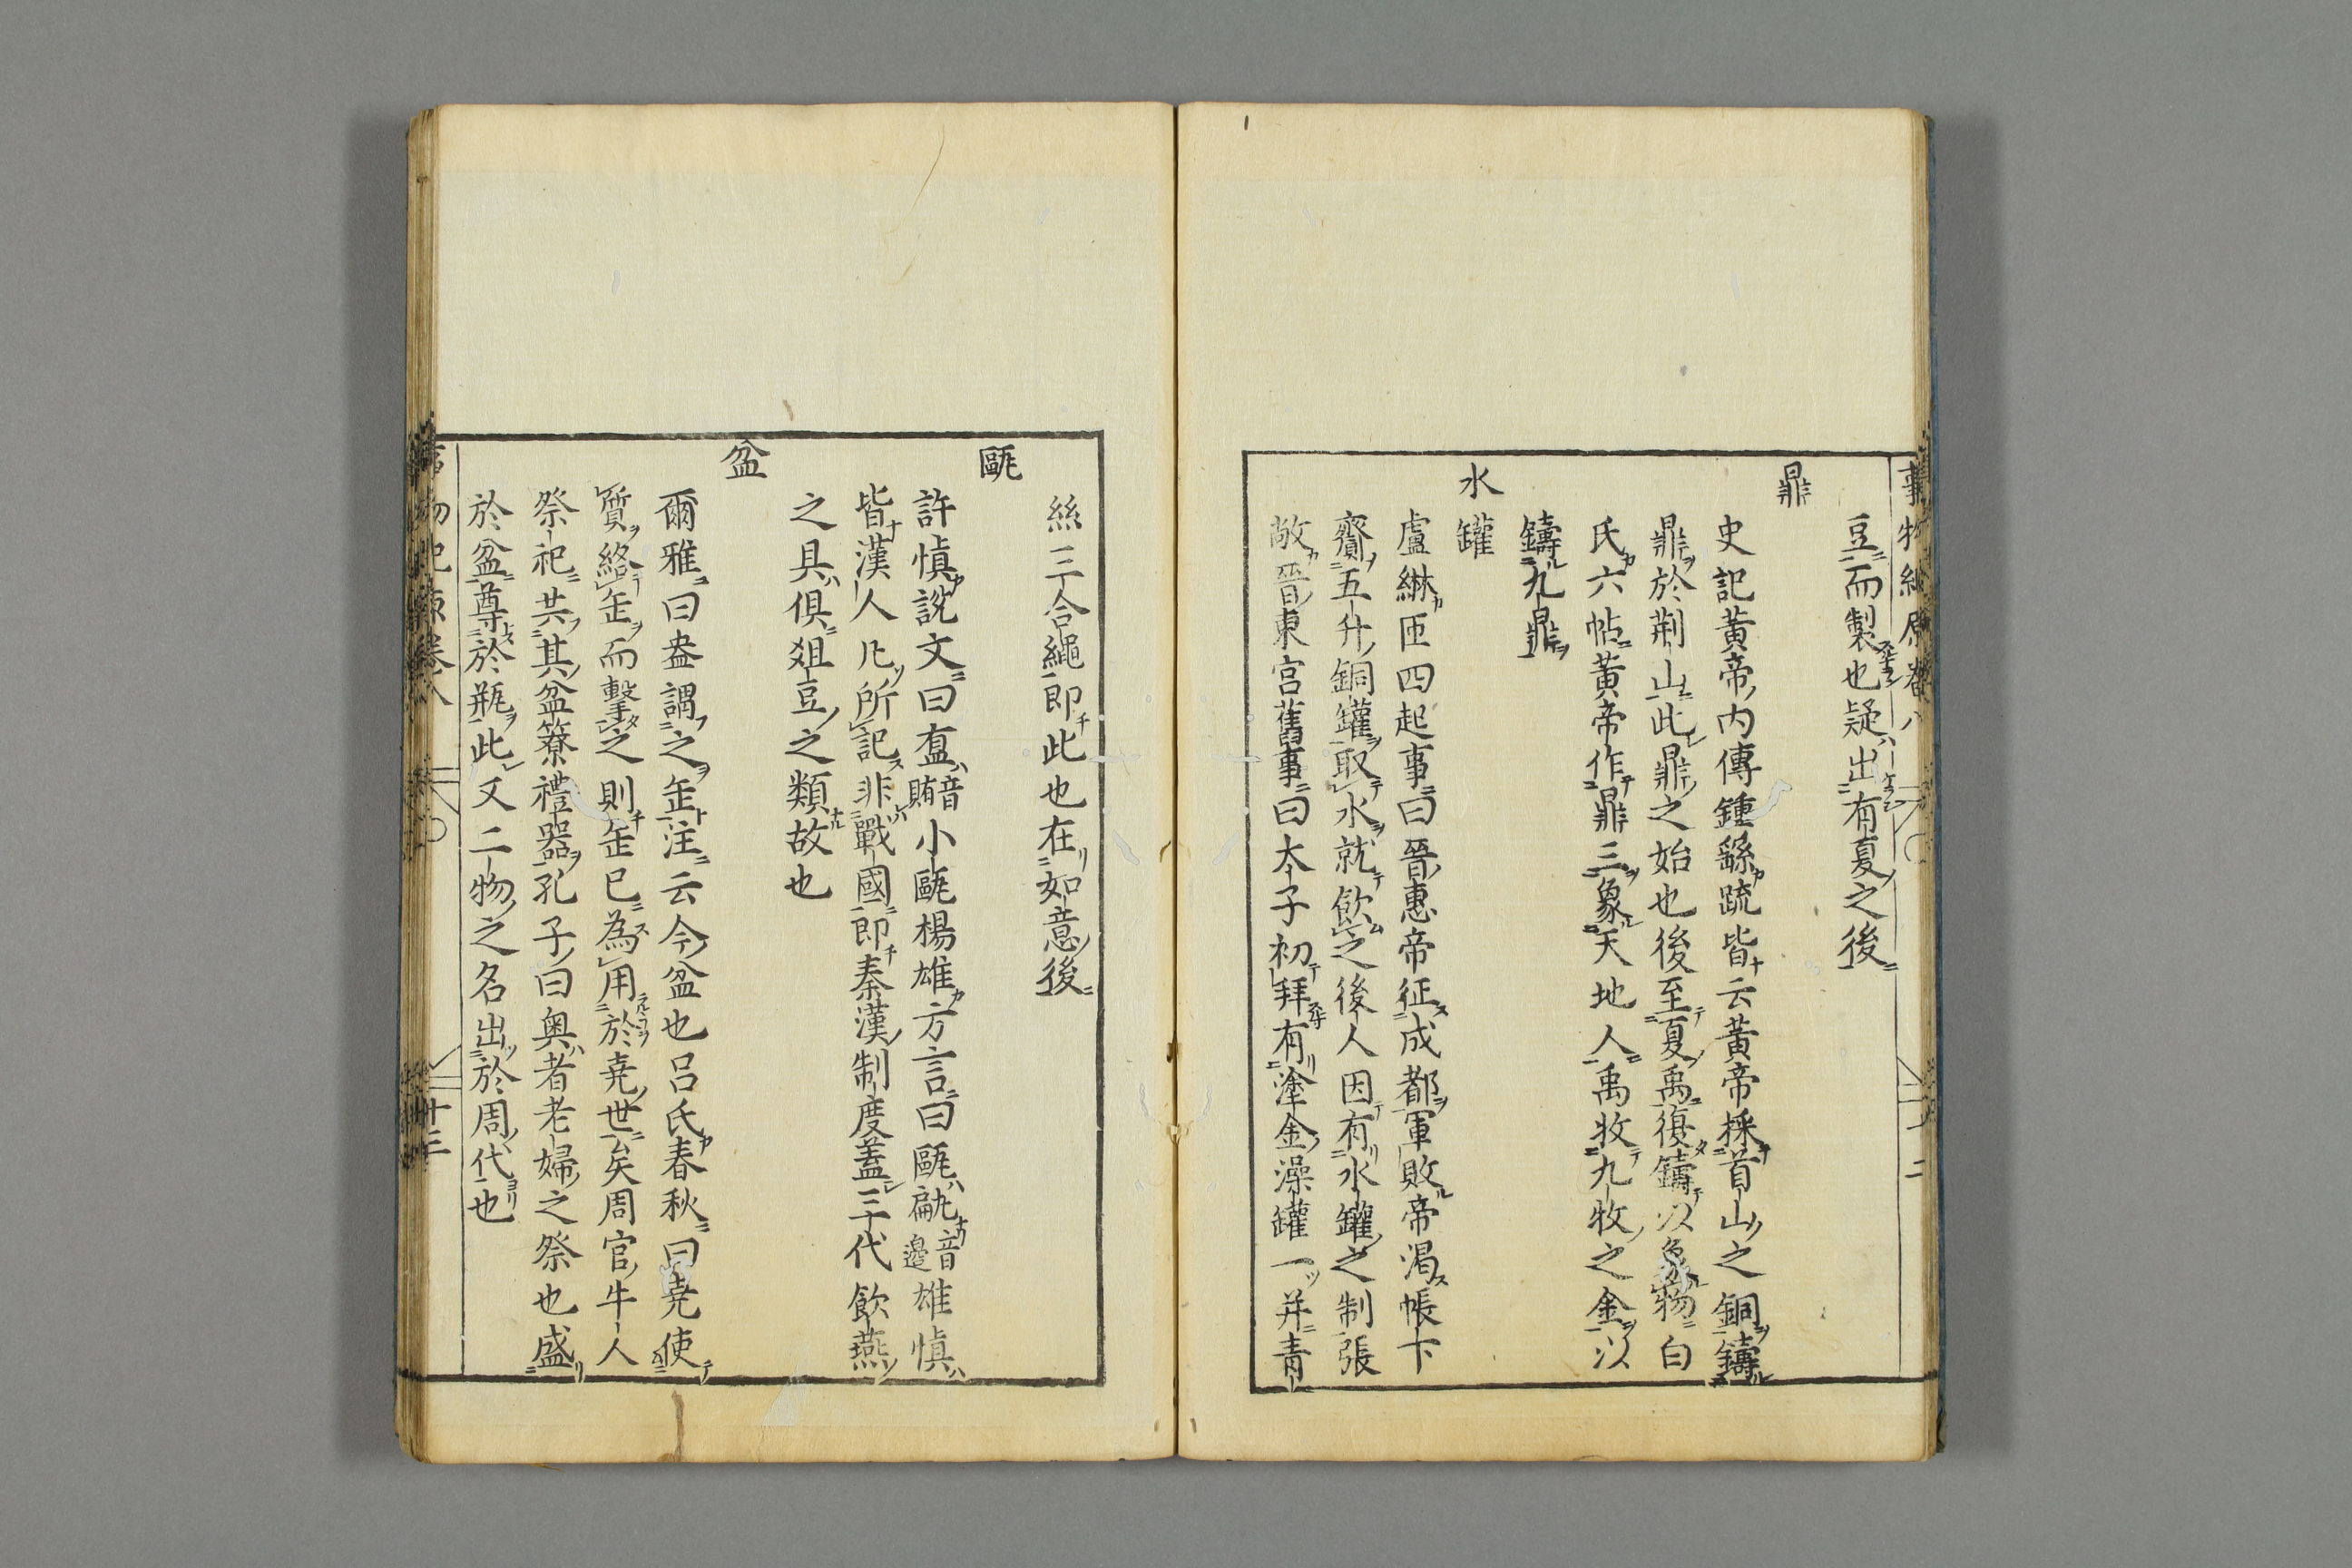 事物紀原卷八
豆而製也疑出有夏之後
鼎
史記黃帝内傳鍾繇䟽皆云黃帝採首山之銅鑄
鼎於荆山此鼎之始也後至夏禹復鑄以象物白
氏六帖黃帝作鼎三象天地人禹牧九牧之金以
鑄九鼎
水罐
盧綝四起事曰晉惠帝征成都軍敗帝渴帳下
齎五升銅罐取水就飲之後人因有水罐之制張
敞晉東宮舊事曰太子初拜有塗金澡罐一并青
絲三合繩即此也在如意後
甌
許愼説文曰㼜音賄小甌楊雄方言曰甌㼐音邊雄愼
皆漢人凡所記非戰國即秦漢制度蓋三代飲燕
之具俱爼豆之類故也
盆
爾雅曰盎謂之缶注云今盆也呂氏春秋曰堯使
質絡缶而擊之則缶已為用於堯世矣周官牛人
祭祀共其盆簝禮器孔子曰奥者老婦之祭也盛
於盆尊於瓶此又二物之名出於周代也
事物紀原卷八
廿三